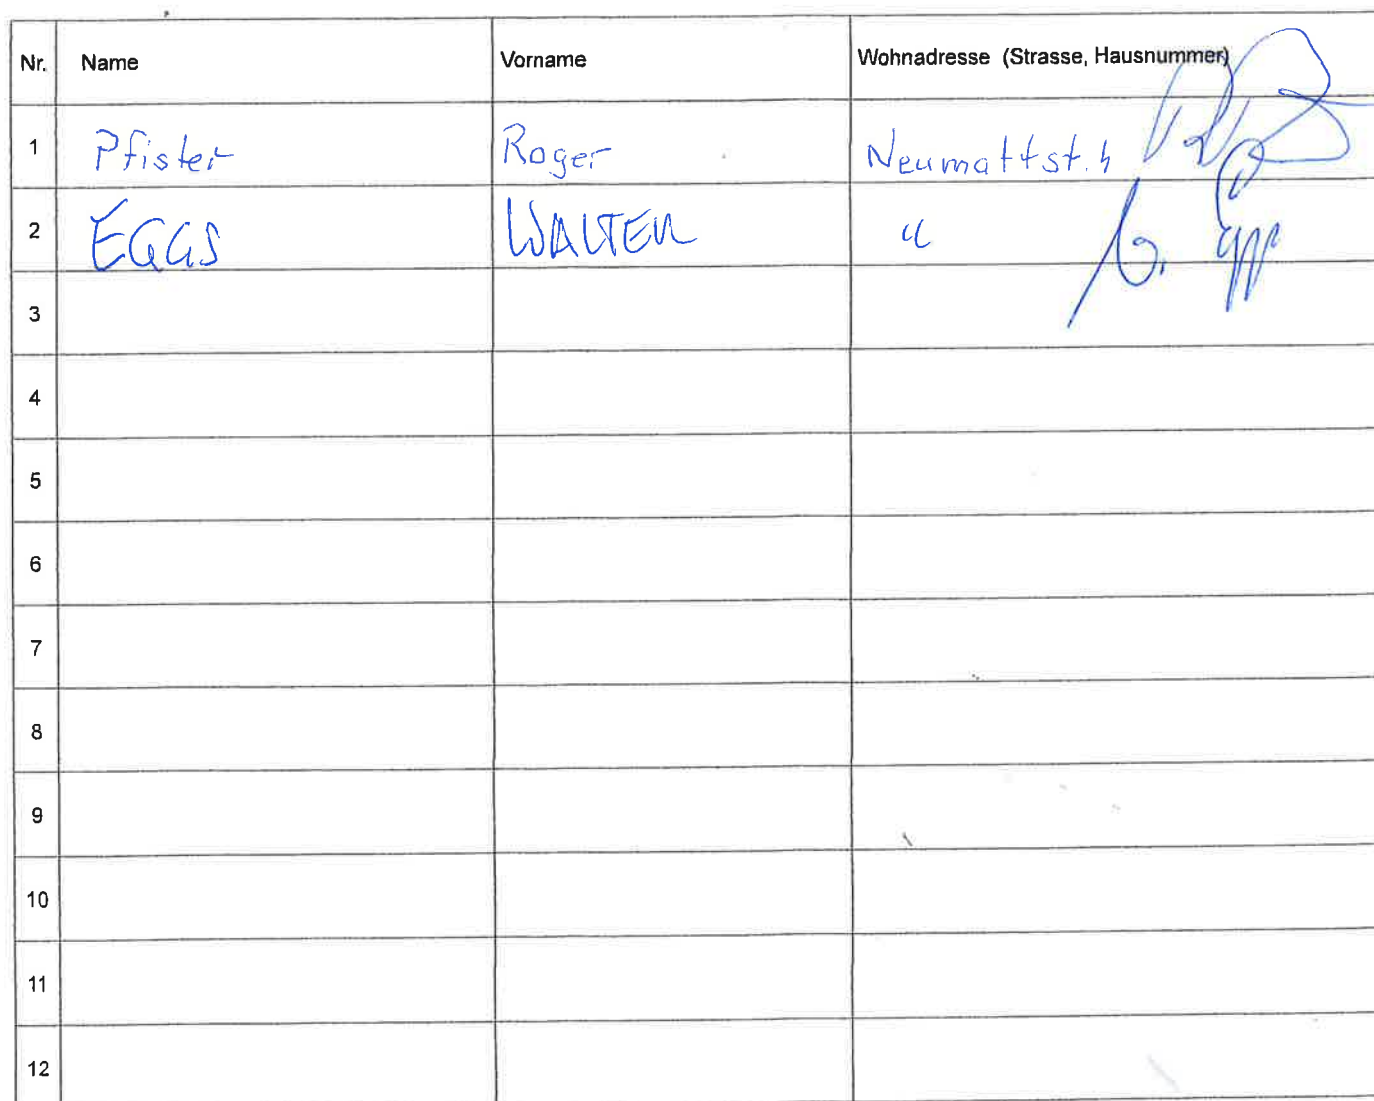 Nr. Name Vorname Wohnadresse (Strasse, Hausnummer)
1 Pfister Roger Neumattst. 4
2 EGGS WALTER "
3
4
5
6
7
8
9
10
11
12